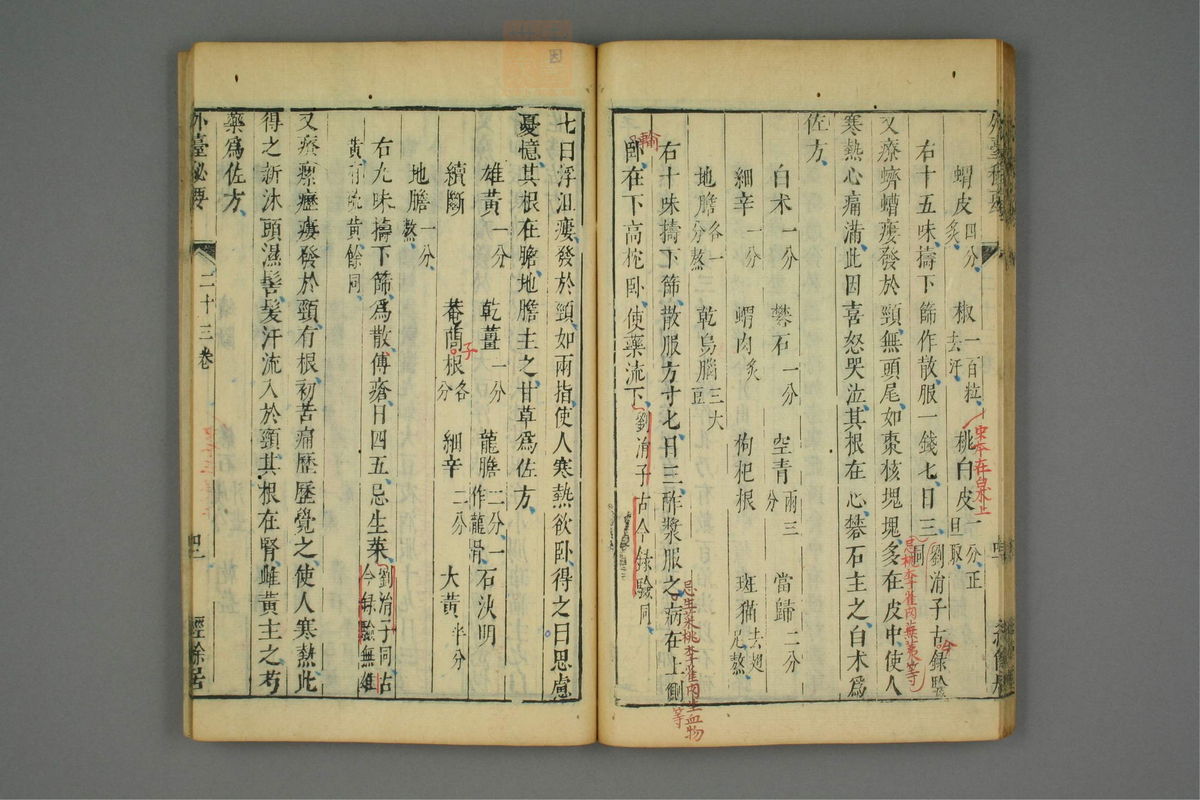 蝟皮四分炙 椒一百粒去汗 桃白皮一分正旦取
右十五味擣下篩作散服一錢匕日三劉涓子古錄驗同
又療蠐螬瘻發於頸無頭尾如棗核塊塊多在皮中使人
寒熱心痛滿此因喜怒哭泣其根在心礜石主之白朮爲
佐方
白朮一分 礜石一分 空青兩三分 當歸二分
細辛一分 蝟肉炙 枸杞根 斑猫去翅足熬
地膽各一分熬 乾烏腦三大豆
右十味擣下篩散服方寸匕日三酢漿服之病在上側
卧在下高枕卧使藥流下劉涓子古今錄驗同
東本在白朮上
今
忌桃李雀肉蕪荑等
忌生菜桃李雀肉生血物等
輸
七日浮沮瘻發於頸如兩指使人寒熱欲卧得之日思慮
憂憶其根在膽地膽主之甘草爲佐方
雄黃一分 乾薑一分 龍膽二分一作龍骨 石決明
續斷 菴䕡根各分 細辛二分 大黃半分
地膽一分熬
右九味擣下篩爲散傅瘡日四五忌生菜劉涓子同古今錄驗無雄
黃有硫黃餘同
又療瘰癧瘻發於頸有根初苦痛歷歷覺之使人寒熱此
得之新沐頭濕髻髮汗流入於頸其根在腎雌黃主之芍
藥爲佐方
子
外臺秘要 二十三卷 四二 經餘居